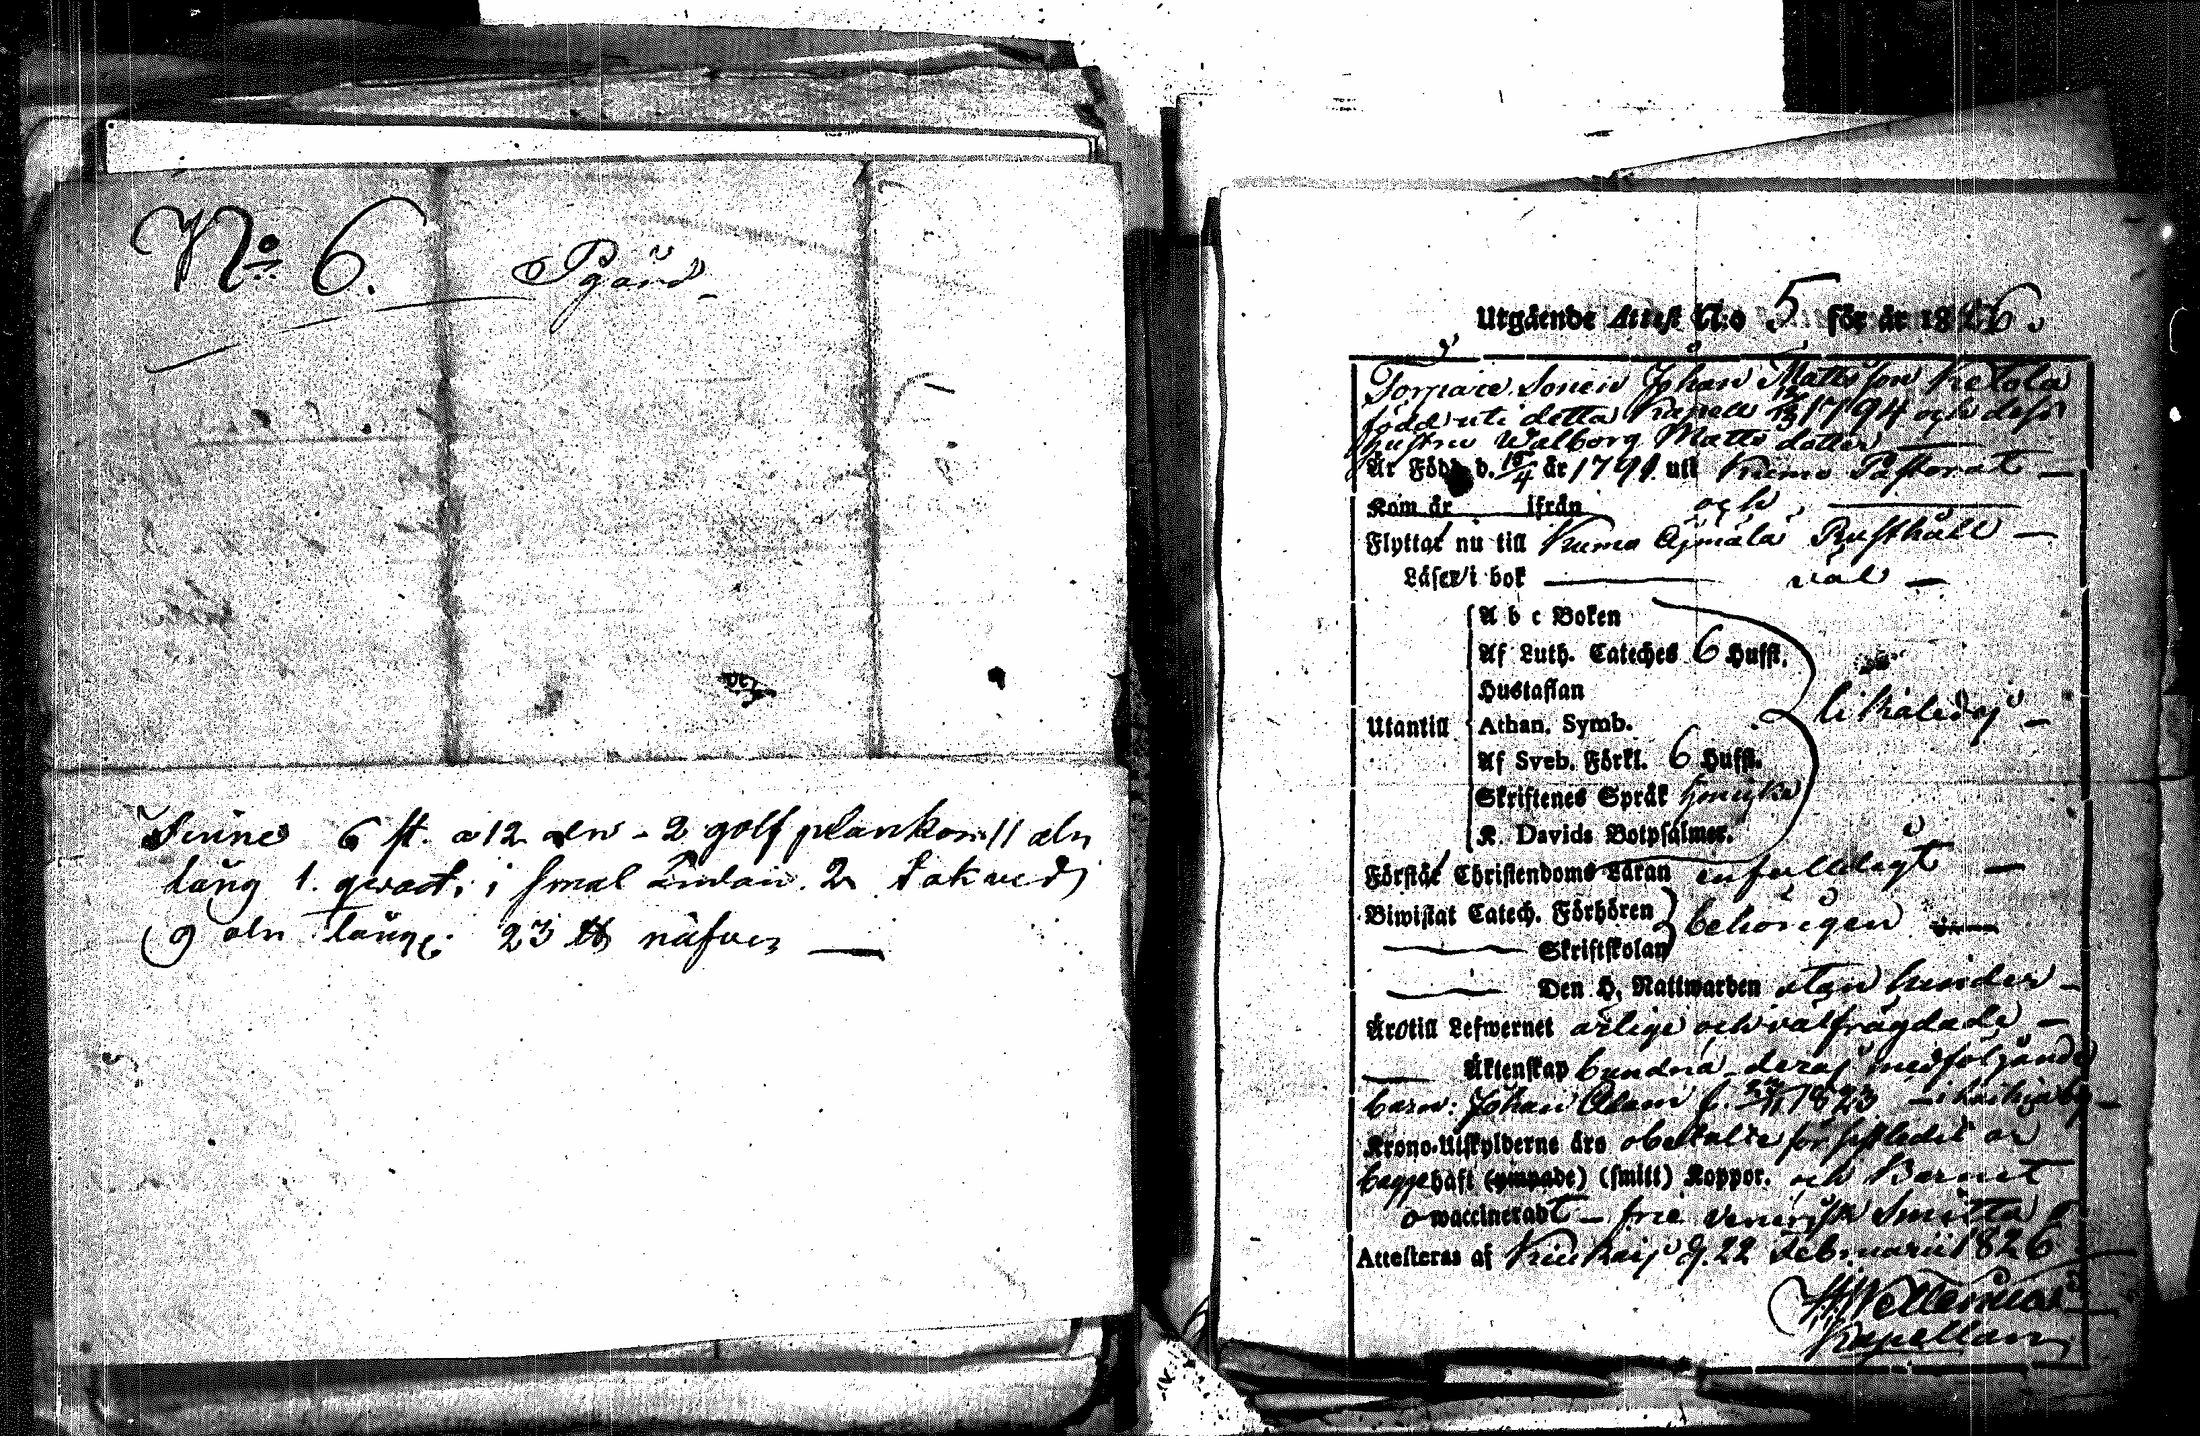 No 6. Pgård
6 st. a 12 aln - 2 golf plankor 11 aln
lång 1. qvart. i smal ändan. 2 takved
9 aln långe. 23 ℔ näfver
Utgående Attest N:o 5 för år 1826.
Torpare Sonen Johan Mattsson Ketola
född uti detta Kapell 1794 och dess
hustru Walborg Matts dotter
Är Född d. 15/4 år 1791 uti Kumo Pastorat
Kom år ifrån och
Flyttar nu till Kumo Äjmälä Rusthåll
Läser i bok väl
A b c Boken
Af Luth. Cateches 6 Hufst.
Hustaflan
Utantill Athan. Symb. likaledes
Af Sveb. Förkl. 6 Hufst.
Skriftenes Språk
K. Davids Botpsalmer.
Förstår Christendoms Läran enfalldigt
Biwistat Catech. Förhören behörigen
Skriftskolan
Den H. Nattwarden utan hinder
Äro till Lefwernet ärlige och välfrägdade
Äktenskap bundna, deras medföljande
barn: Johan Adam f. 1823
Krono-Utskylderne äro obetalte för sistledit år
Bägge haft (ympade) (smitt) Koppor. och Barnet
waccineradt - frie venerisk Smitta
Attesteras af d. 22 Februarii 1826
Kapellan